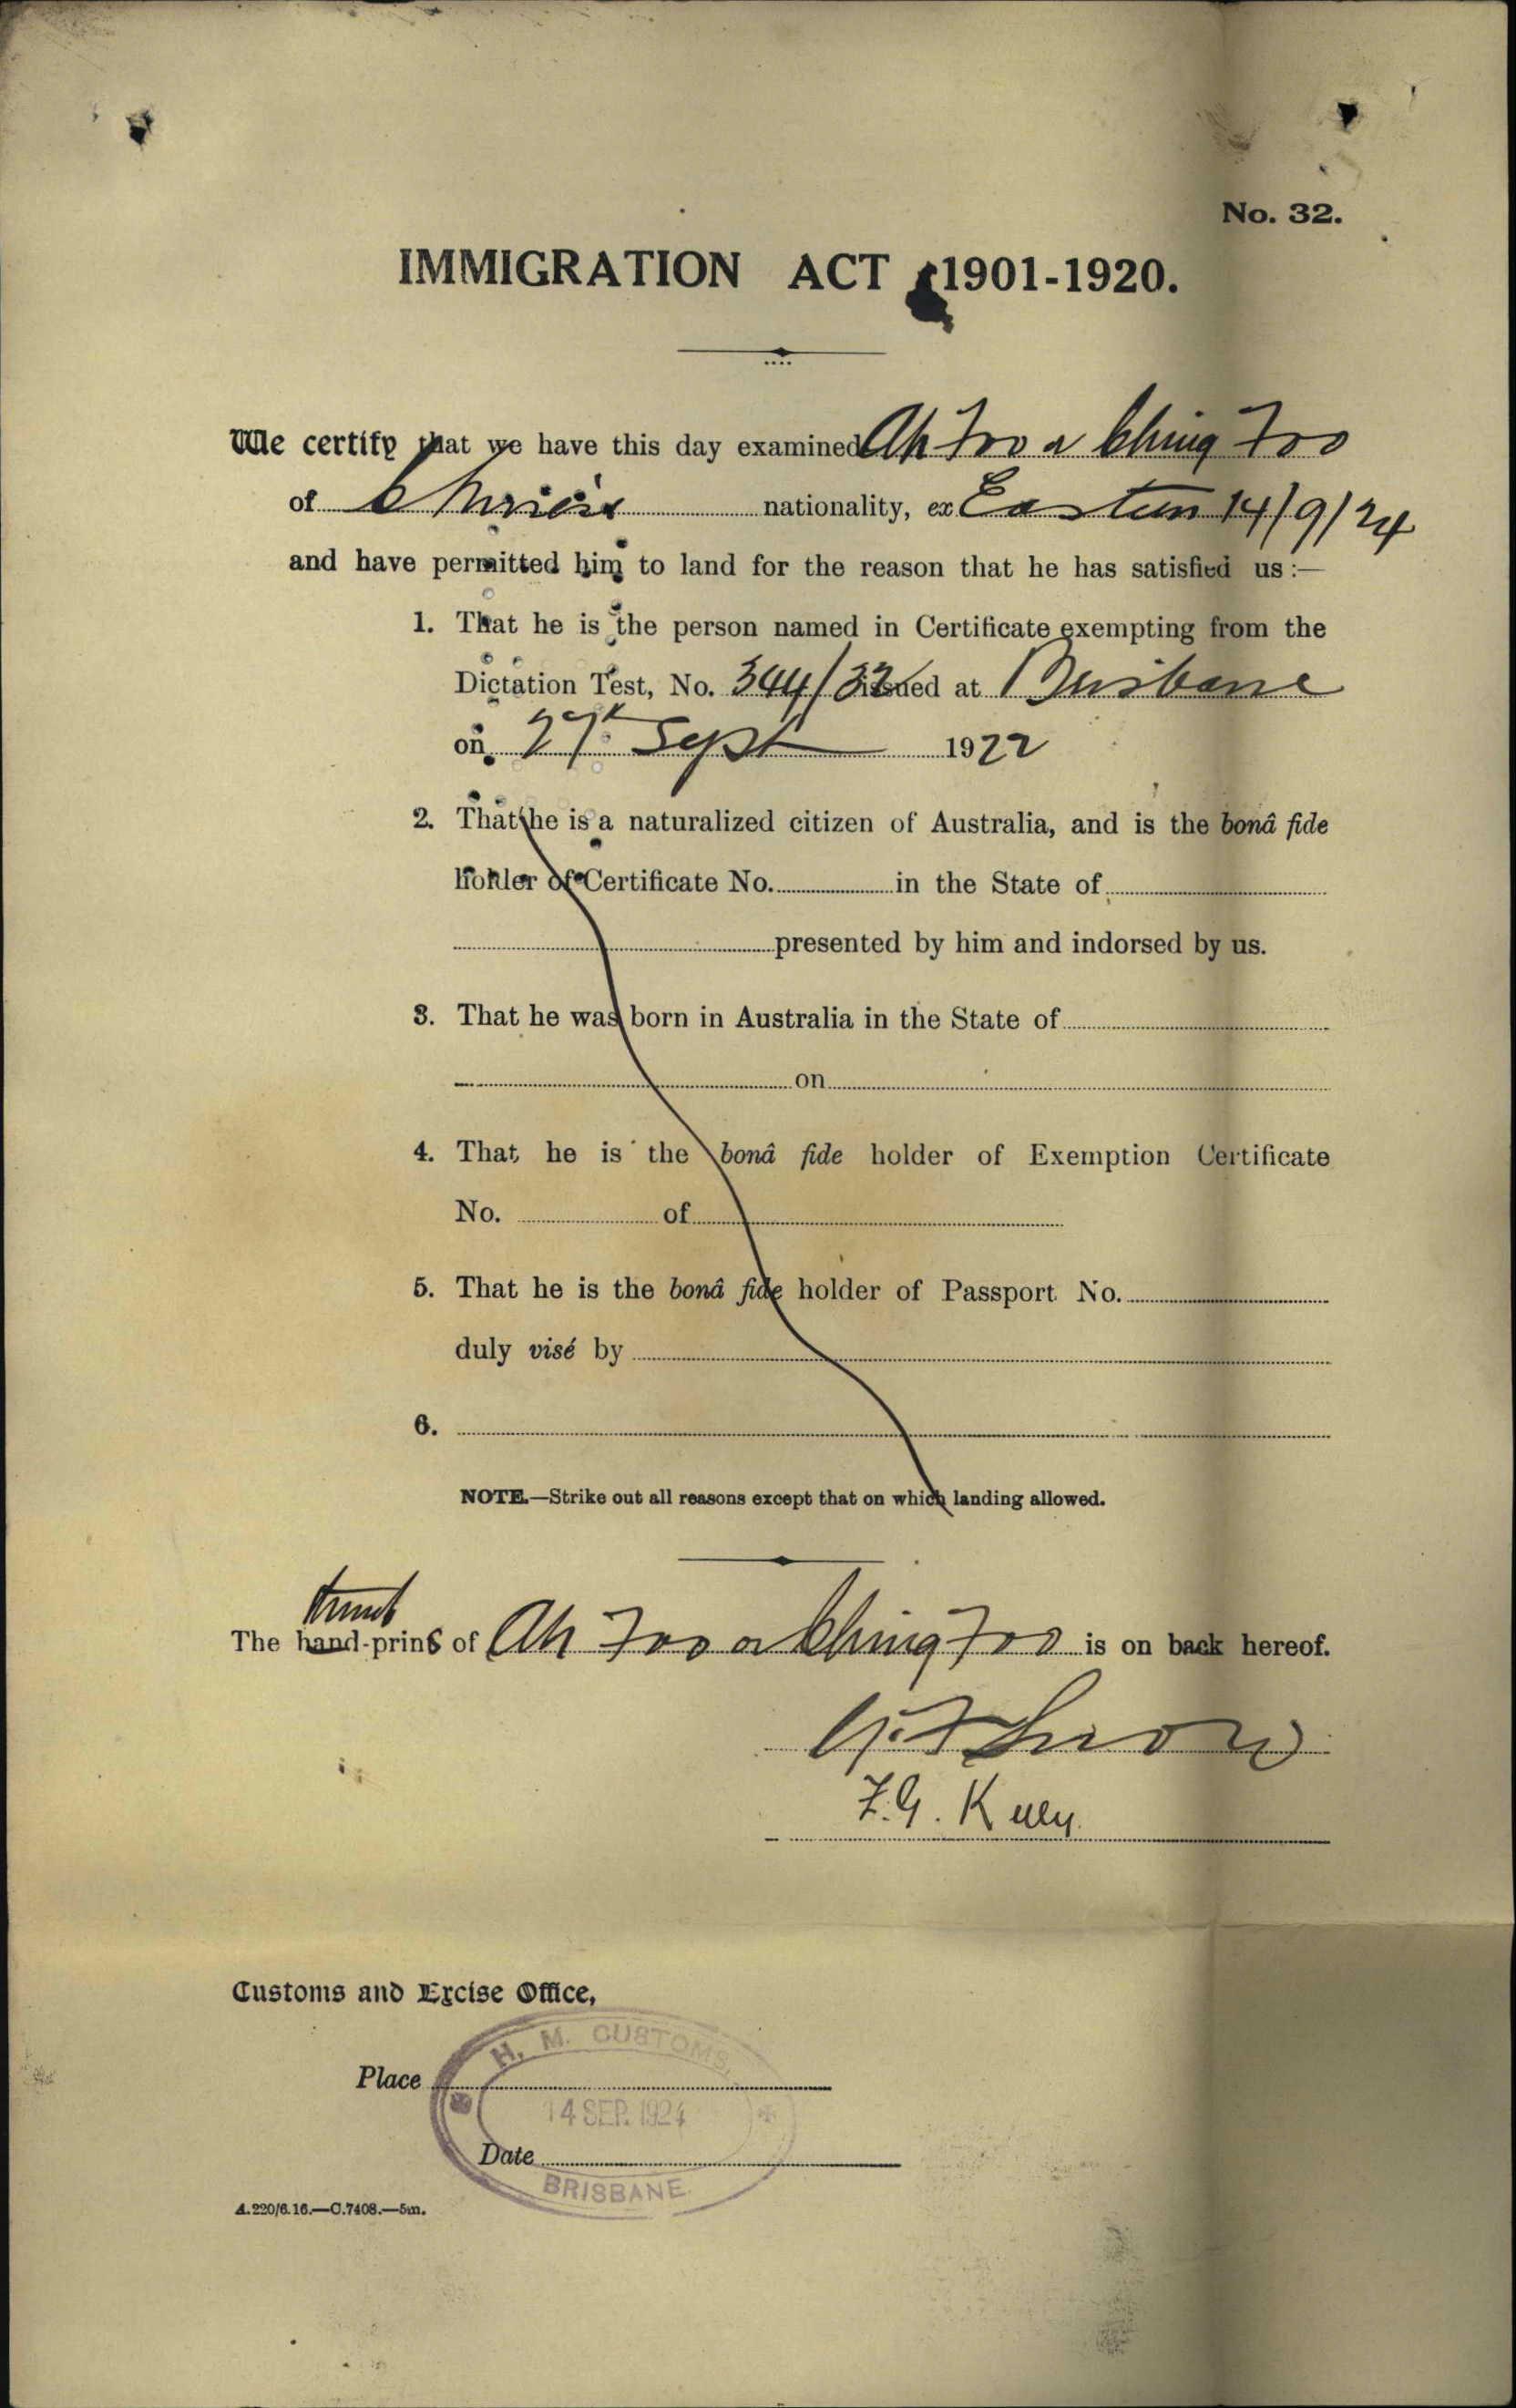 No. 32.
IMMIGRATION ACT 1901-1920.
We certify that we have this day examined Ah Foo or Ching Foo
of Chinese nationality, ex Eastern 14/9/24
and have permitted him to land for the reason that he has satisfied us :—
1. That he is the person named in Certificate exempting from the
Dictation Test, No. 344/32 issued at Brisbane
on 27th Sept 1922
2. That he is a naturalized citizen of Australia, and is the bonâ fide
holder of Certificate No. in the State of
presented by him and indorsed by us.
3. That he was born in Australia in the State of
on
4. That he is the bonâ fide holder of Exemption Certificate
No. of
5. That he is the bonâ fide holder of Passport No.
duly visé by
6.
NOTE.—Strike out all reasons except that on which landing allowed.
thumb
The hand-print of Ah Foo or Ching Foo is on back hereof.
F.G. Kelly
Customs and Excise Office,
H. M. CUSTOMS,
Place
14 SEP. 1924
Date
BRISBANE.
A.220/6.16.—C.7408.—5m.